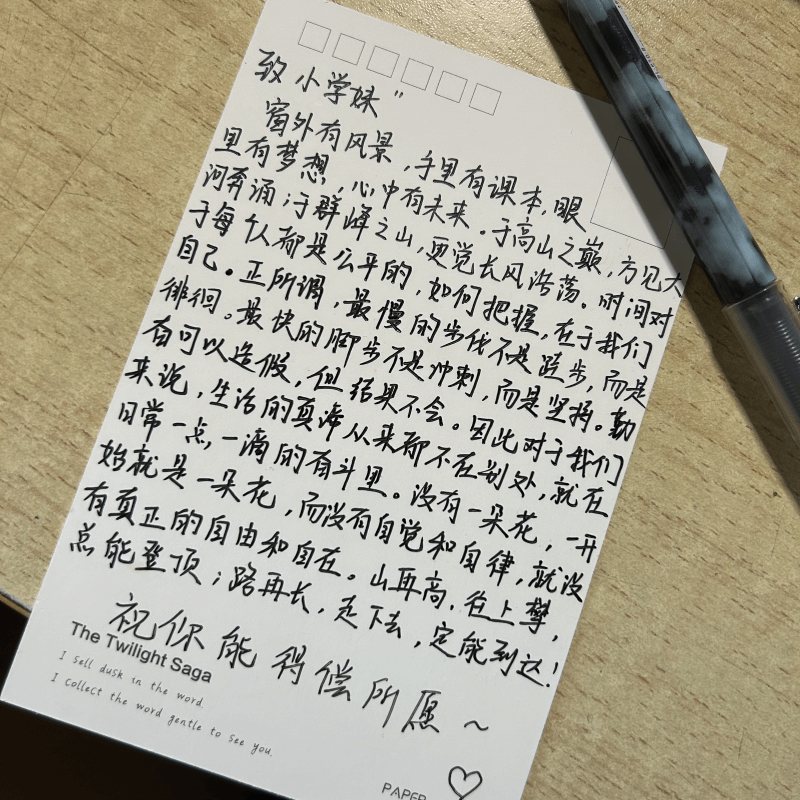 致小学妹"
窗外有风景,手里有课本,眼
里有梦想,心中有未来。于高山之巅,方见大
河奔涌;于群峰之山,更觉长风浩荡。时间对
于每个人都是公平的,如何把握,在于我们
自己。正所谓,最慢的步伐不是跬步,而是
徘徊。最快的脚步不是冲刺,而是坚持。勤
奋可以造假,但结果不会。因此对于我们
来说,生活的真谛从来都不在别处,就在
日常一点,一滴的奋斗里。没有一朵花,一开
始就是一朵花,而没有自觉和自律,就没
有真正的自由和自在。山再高,往上攀,
总能登顶;路再长,走下去,定能到达!
祝你能得偿所愿~
The Twilight Saga
I Sell dusk in the word.
I Collect the word gentle to see you.
PAPER